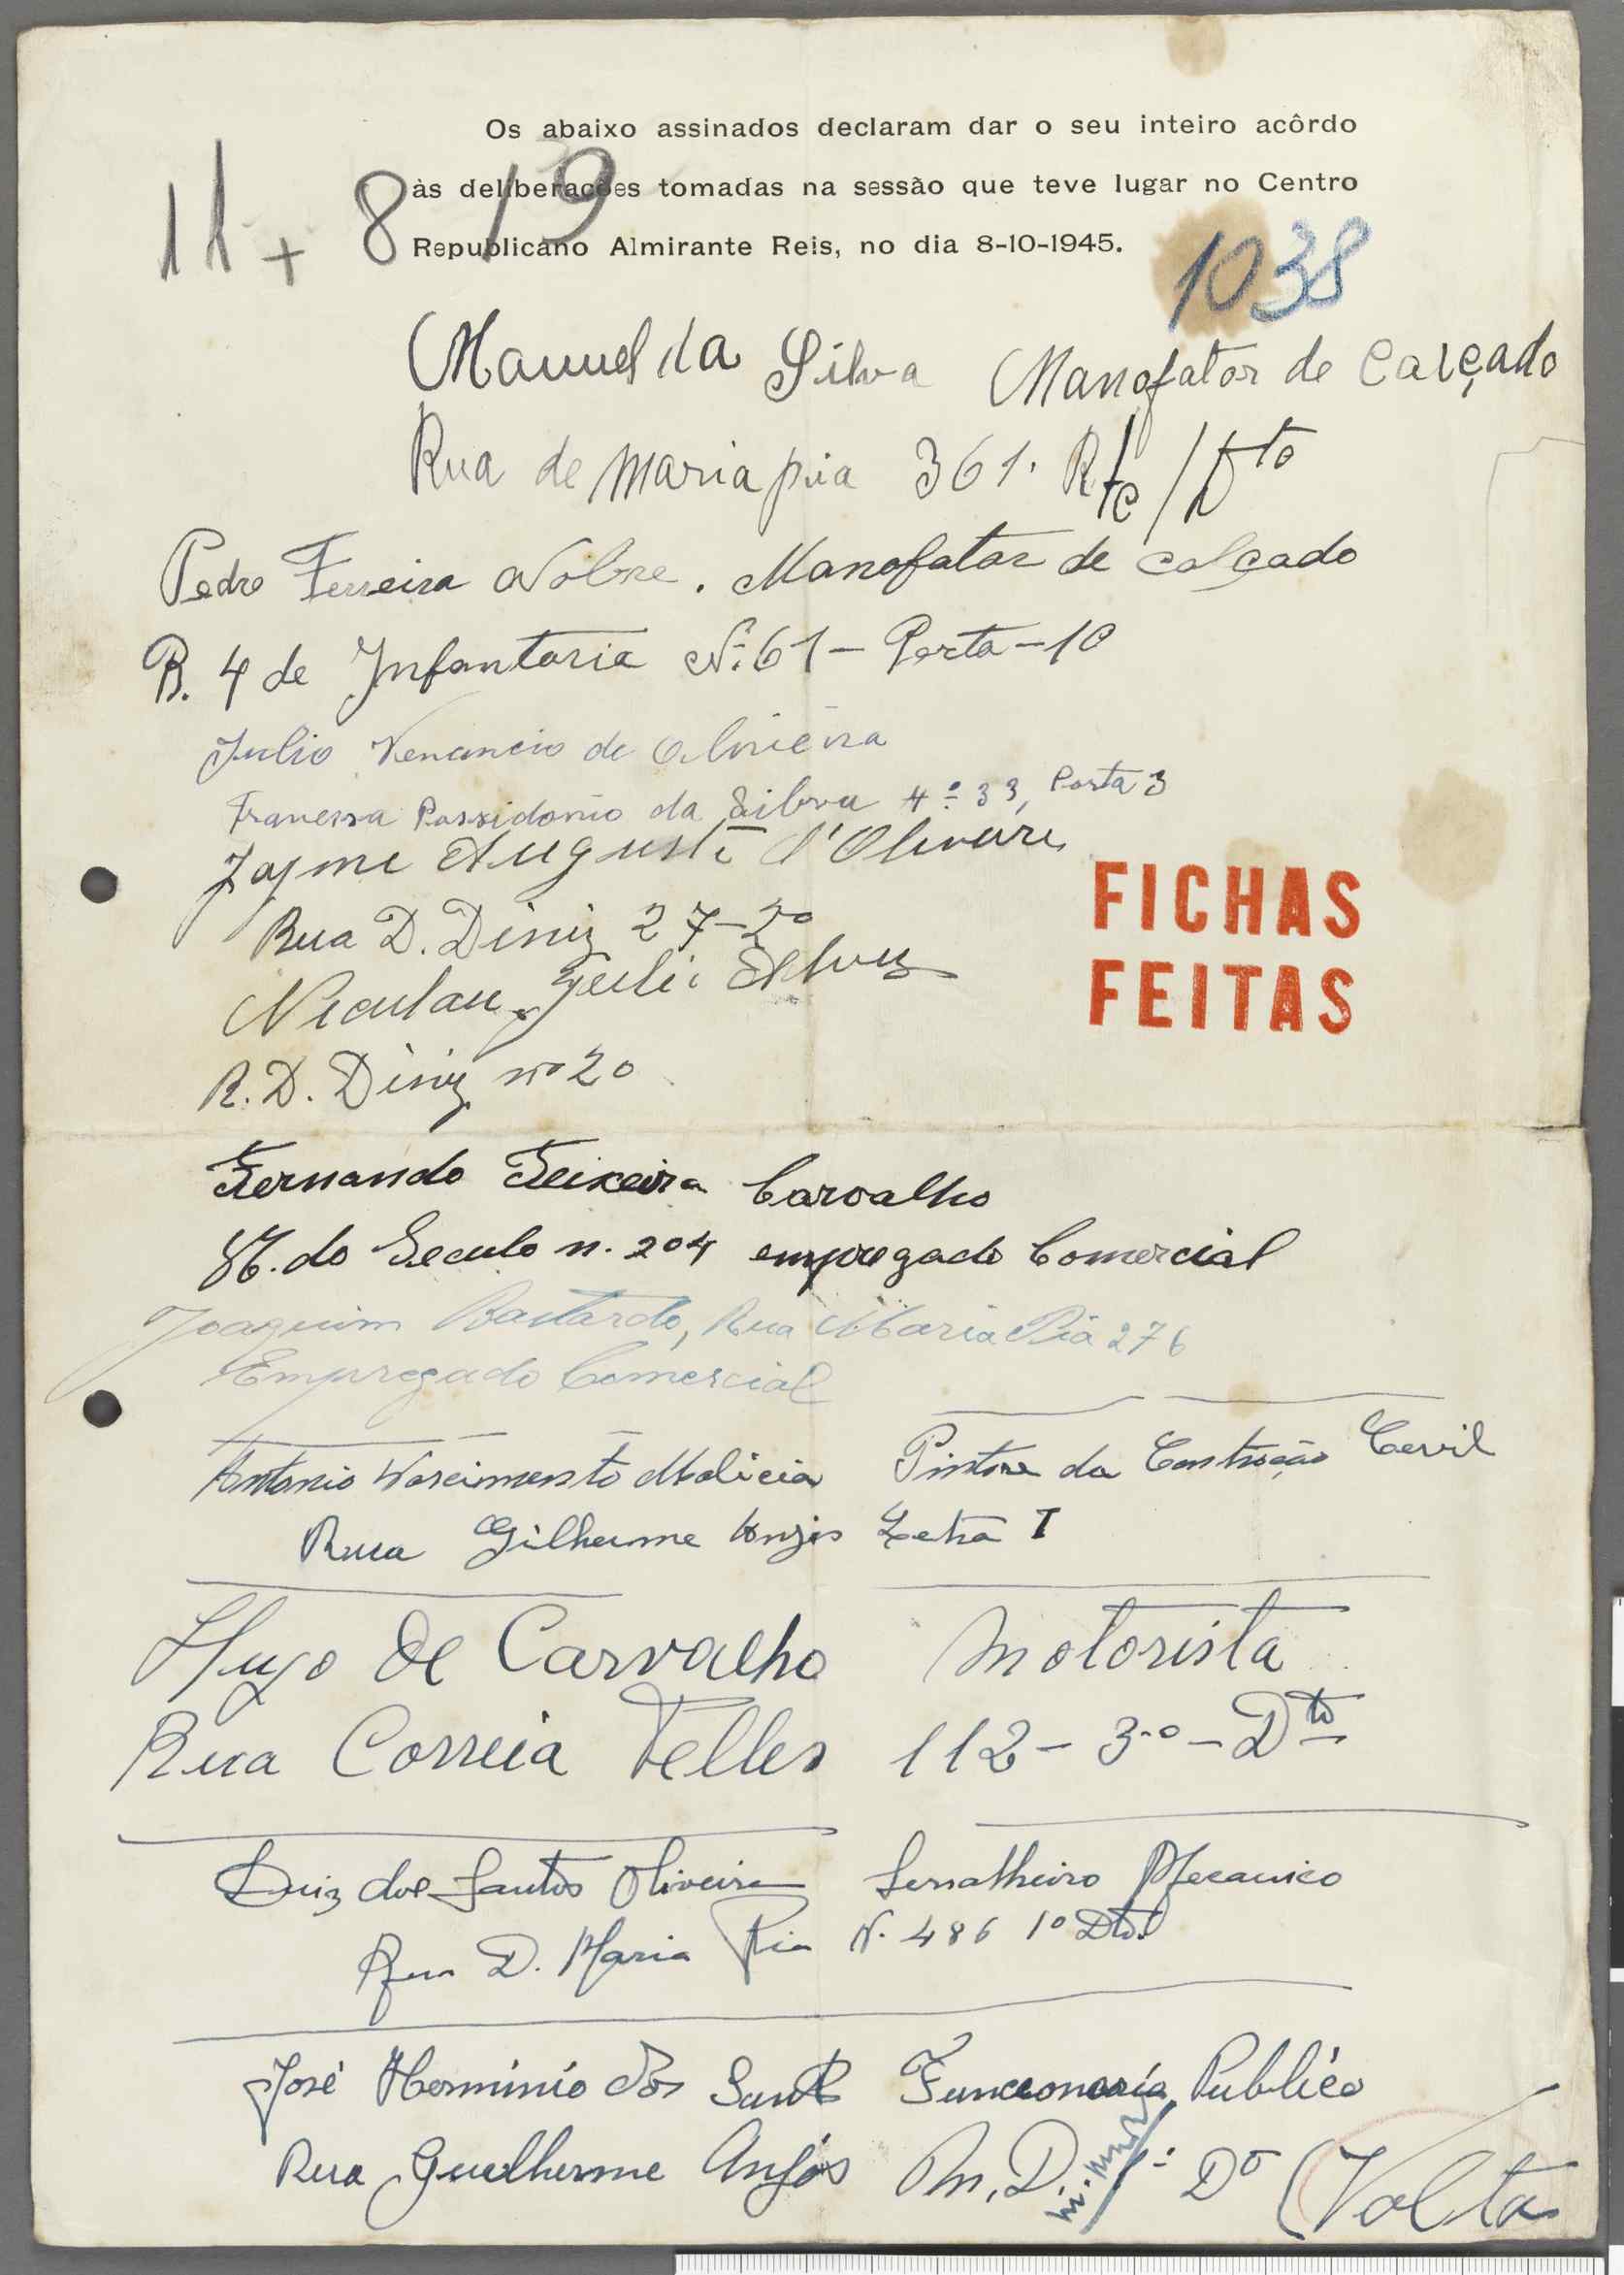 Os abaixo assinados declaram dar o seu inteiro acôrdo
às deliberações tomadas na sessão que teve lugar no Centro
Republicano Almirante Reis, no dia 8-10-1945.
11 + 8 19
1038
Manuel da Silva Manofator de Calçado
Rua de Maria pia 361. R/c / Dto
Pedro Ferreira Nobre. Manofator de calçado
R. 4 de Infantaria Nº 61 - Porta - 10
Julio Venancio de Oliveira
Travessa Possidonio da Silva Nº 33, Porta 3
Jayme Augusto d'Oliveira
Rua D. Diniz 27-2º
FICHAS
FEITAS
Niculau Julio Alves
R. D. Diniz nº 20
Fernando Teixeira Carvalho
R. do Seculo n. 204 empregado Comercial
Joaquim Bastardo, Rua Maria Pia 276
Empregado Comercial
Antonio Nascimento Malicia Pintor da Construção Cevil
Rua Gilherme Anjos Letra I
Hugo de Carvalho Motorista
Rua Correia Telles 112 - 3.º - Dto
Luiz dos Santos Oliveira Serralheiro Mecanico
Rua D. Maria Pia N. 486 1º Dto.
José Herminio dos Santos Funcionario Publico
Rua Guilherme Anjos M. D. 1º Dº (Volta